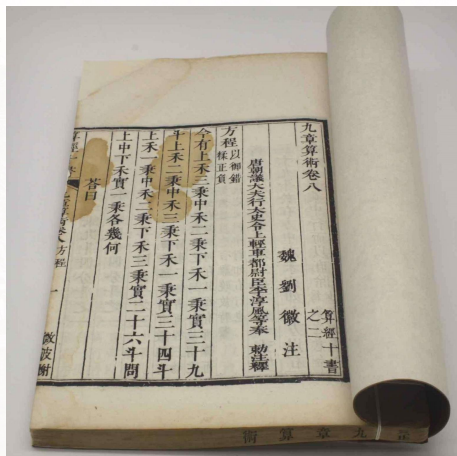 九章算術卷八
算經十書之二
魏劉徽注
唐朝議大夫行太史令上輕車都尉臣李淳風等奉 勅注釋
方程以御錯糅正負
今有上禾三秉中禾二秉下禾一秉實三十九
斗上禾二秉中禾三秉下禾一秉實三十四斗
上禾一秉中禾二秉下禾三秉實二十六斗問
上中下禾實一秉各幾何
荅曰
方程
一
微波榭
九章算術